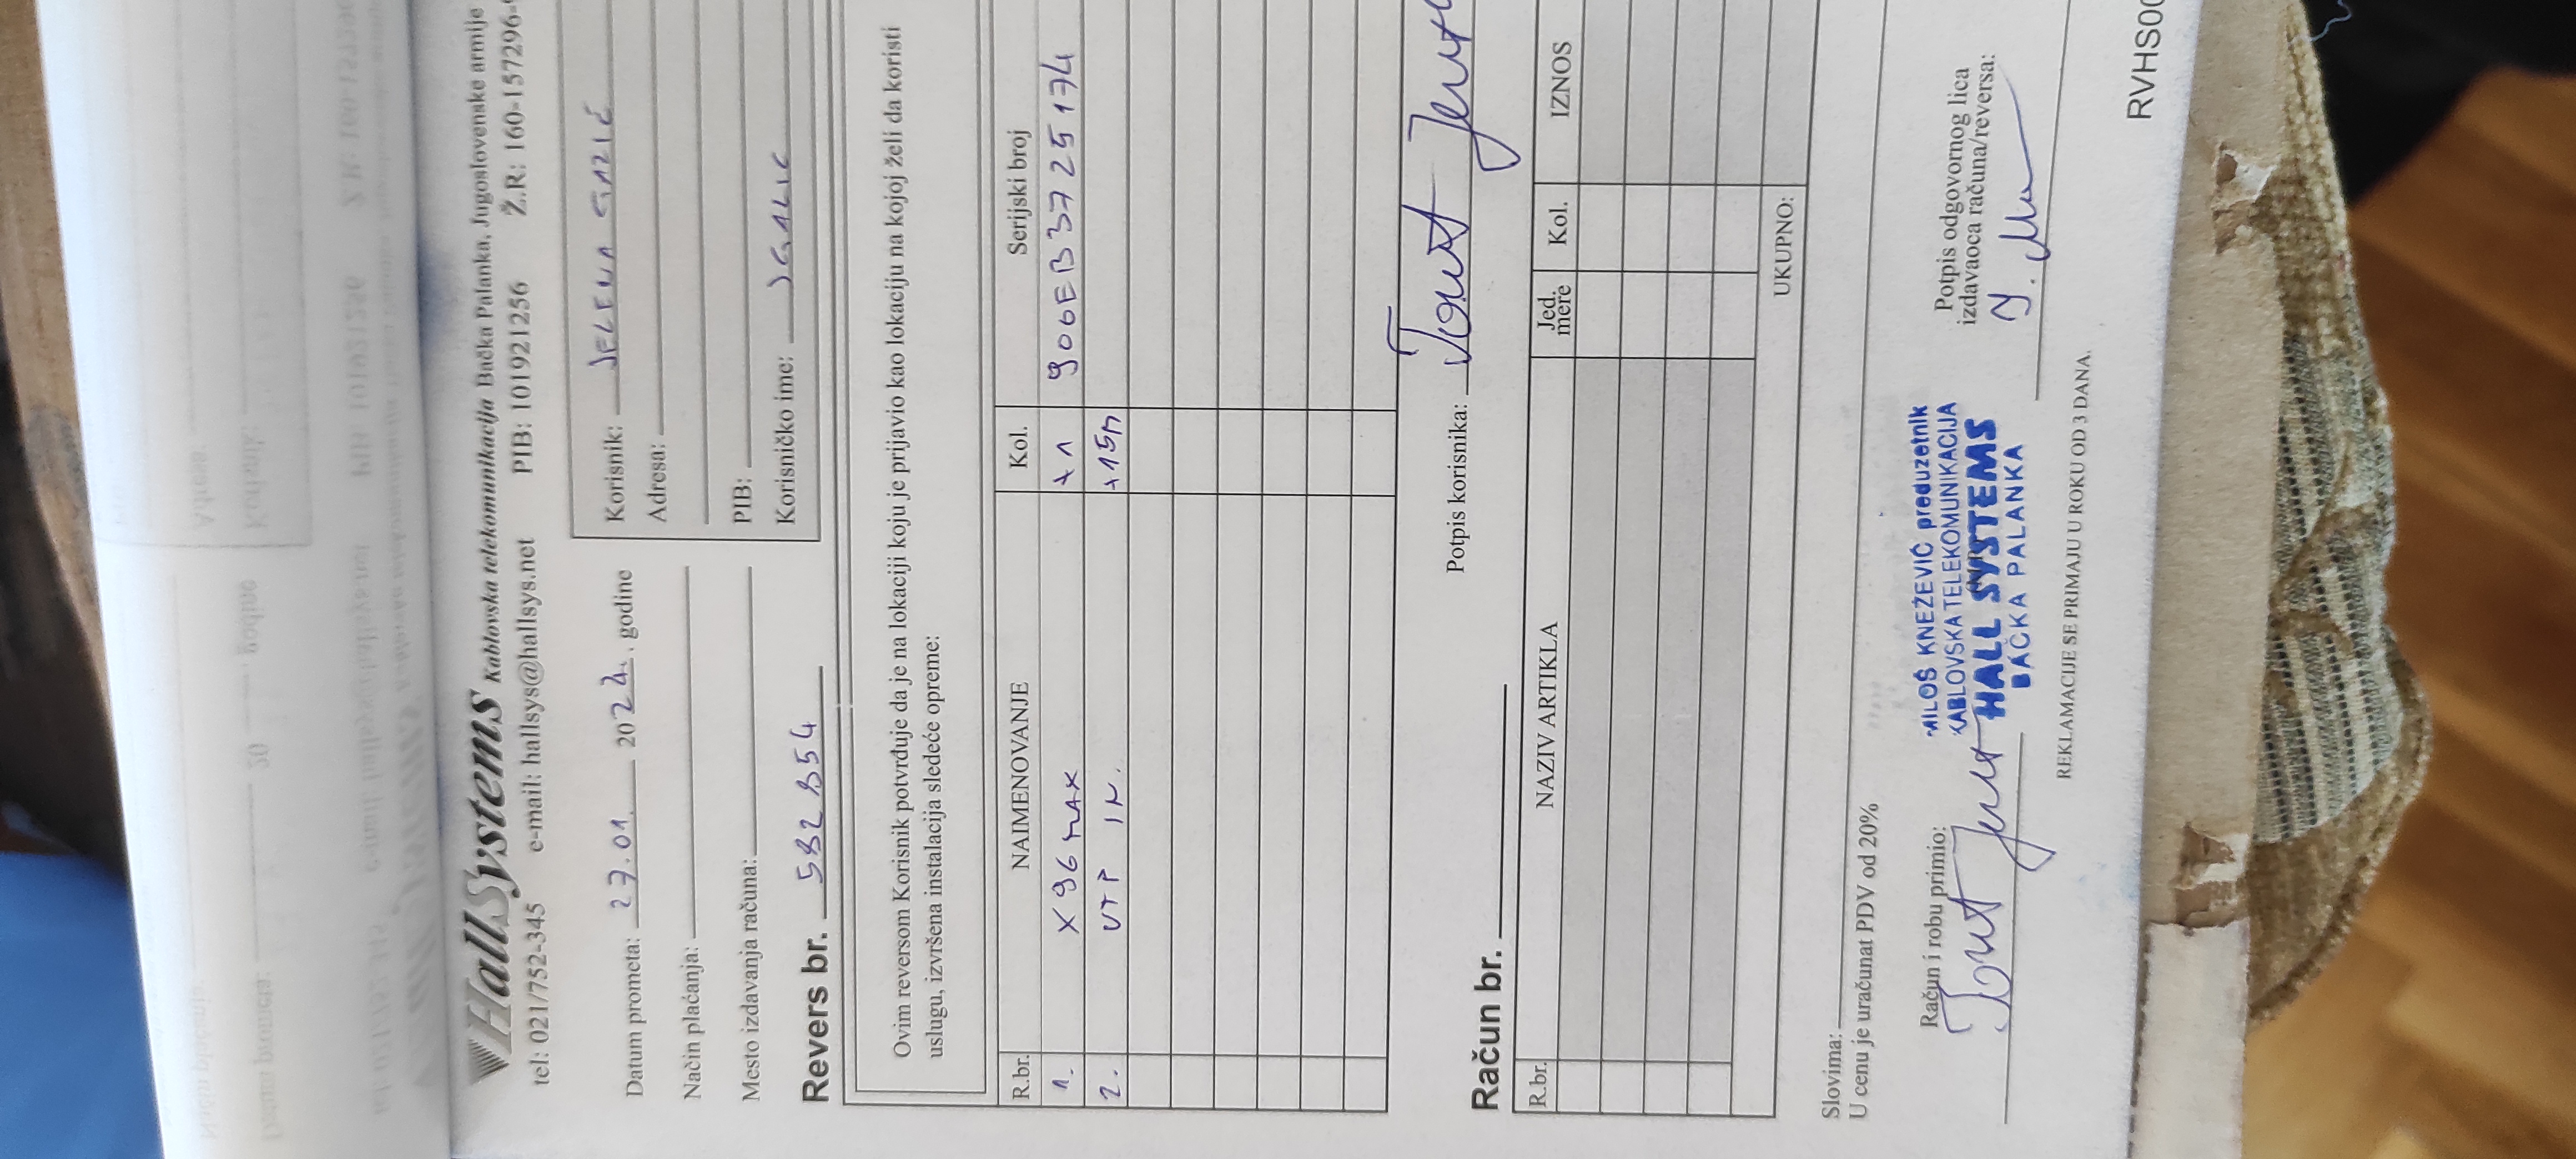 HallSystems Kablovska telekomunikacija Bačka Palanka, Jugoslovenske armije
tel: 021/752-345 e-mail: hallsys@hallsys.net PIB: 101921256 Ž.R: 160-157296-
Datum prometa: 27.01. 2024. godine
Način plaćanja:
Mesto izdavanja računa:
Korisnik: JELENA
Adresa:
PIB:
Korisničko ime:
Revers br.
Ovim reversom Korisnik potvrđuje da je na lokaciji koju je prijavio kao lokaciju na kojoj želi da koristi
uslugu, izvršena instalacija sledeće opreme:
R.br. NAIMENOVANJE Kol. Serijski broj
1. X96 MAX +1 906EB3725174
2. UTP IN. +15m
Potpis korisnika:
Račun br.
R.br. NAZIV ARTIKLA Jed. mere Kol. IZNOS
UKUPNO:
Slovima:
U cenu je uračunat PDV od 20%
Račun i robu primio:
MILOŠ KNEŽEVIĆ preduzetnik
KABLOVSKA TELEKOMUNIKACIJA
HALL SYSTEMS
BAČKA PALANKA
Potpis odgovornog lica
izdavaoca računa/reversa:
REKLAMACIJE SE PRIMAJU U ROKU OD 3 DANA.
RVHS00